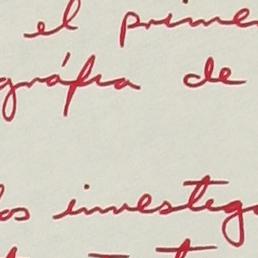 el prime
gráfia de
los investega